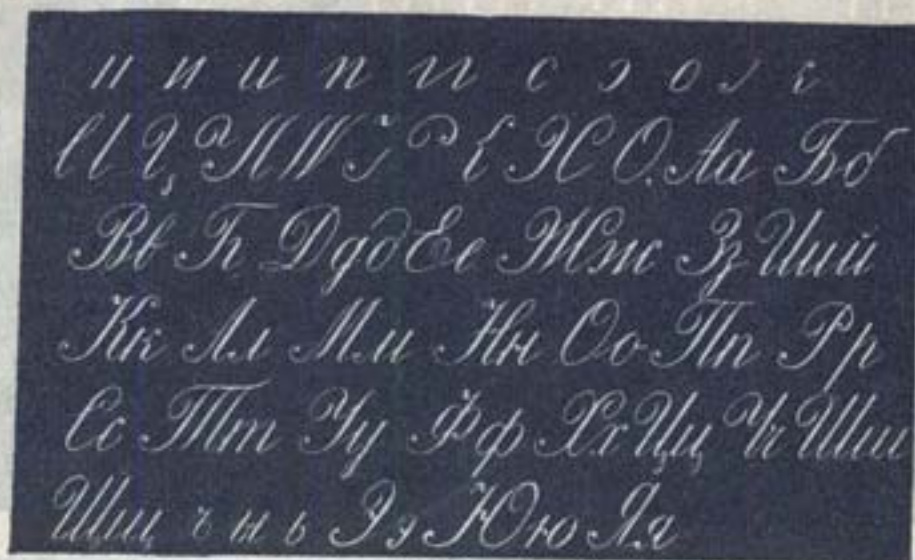 и и и п п с э о
Х О. Аа Бб
Вв Гг Ддд Ее Жж Зз Иий
Кк Лл Мм Нн Оо Пп Рр
Сс Тт Уу Фф Хх Цц Чч Шш
Щщ ъ ы ь Ээ Юю Яя